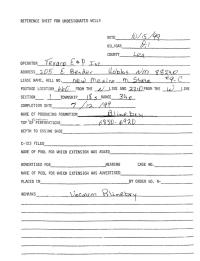 REFERENCE SHEET FOR UNDESIGNATED WELLS
DATE 10/5/99
OIL/GAS Oil
COUNTY Lea
OPERATOR Texaco E&P Inc
ADDRESS 205 E Bender Hobbs NM 88240
LEASE NAME, WELL NO. New Mexico M State
FOOTAGE LOCATION 660 FROM THE N LINE AND FROM THE W LINE
SECTION 1 TOWNSHIP 18s RANGE 34e
COMPLETION DATE 7/12/99
NAME OF PRODUCING FORMATION Blinebry
TOP OF PERFORATIONS 6830-6920
DEPTH TO CASING SHOE
C-123 FILED
NAME OF POOL FOR WHICH EXTENSION WAS ASKED
ADVERTISED FOR HEARING CASE NO.
NAME OF POOL FOR WHICH EXTENSION WAS ADVERTISED
PLACED IN BY ORDER NO. R-
REMARKS Vacuum Blinebry